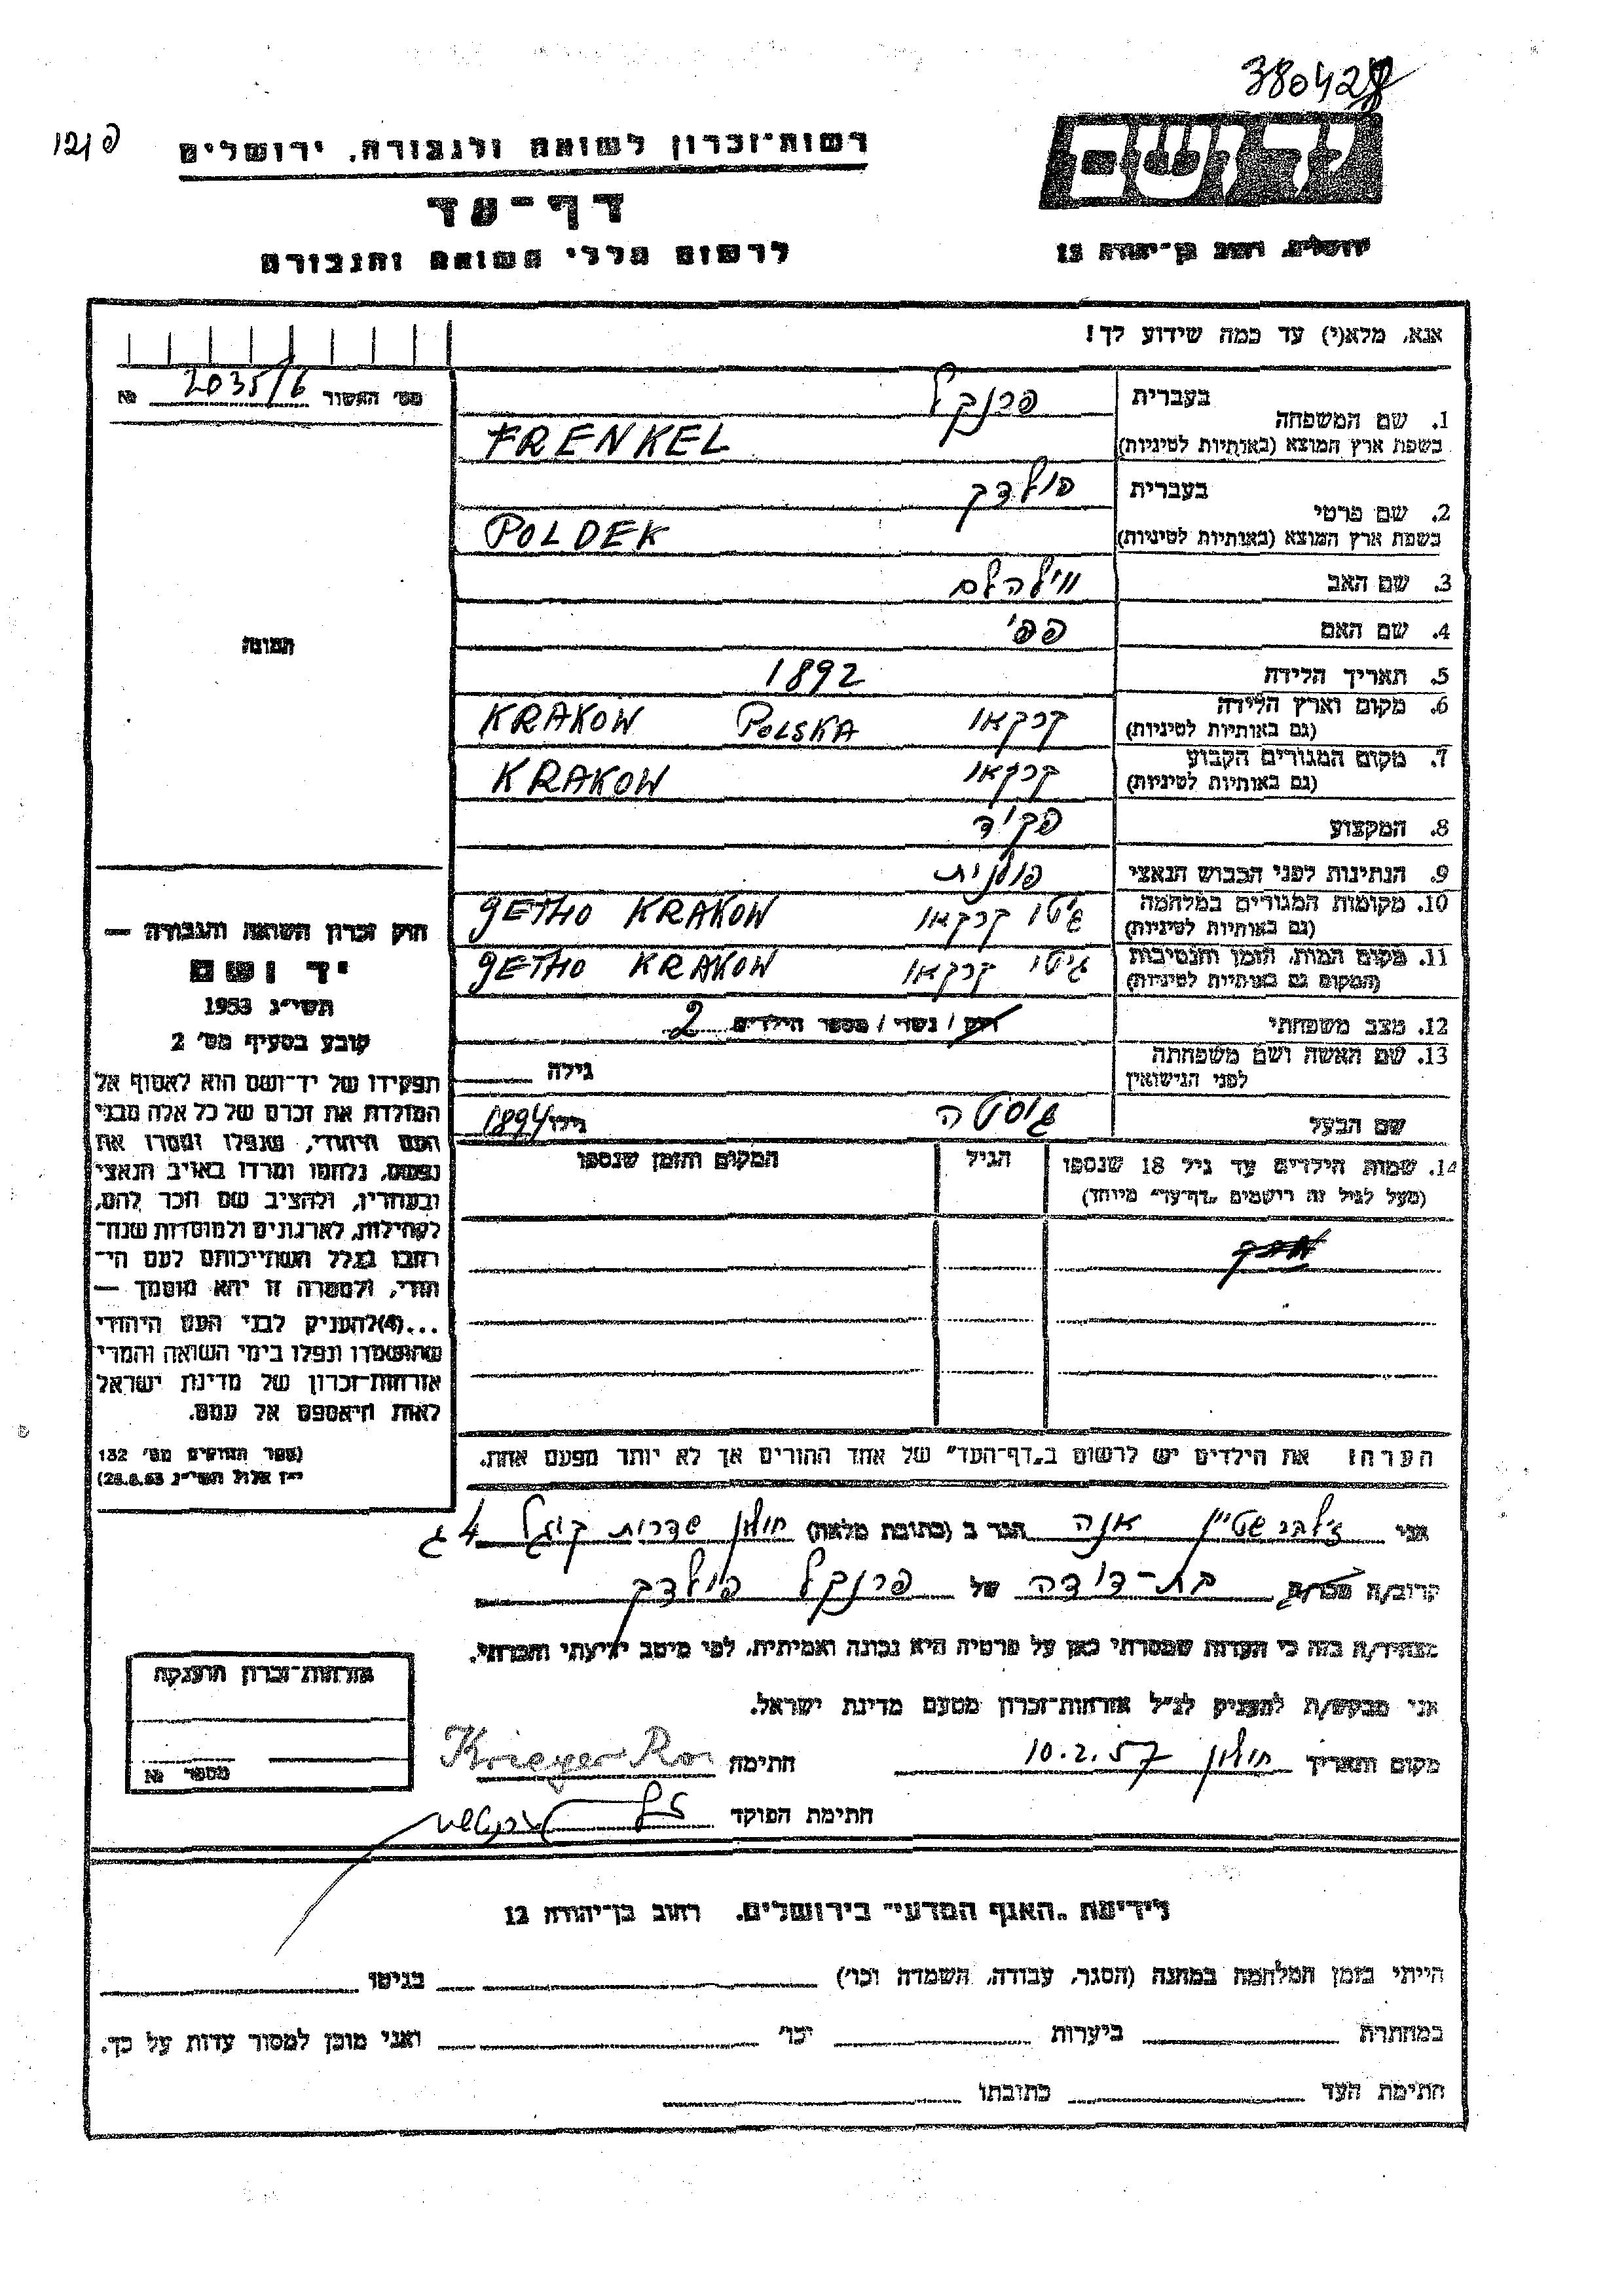 380428
פ 121
רשות־זכרון לשואה ולגבורה, ירושלים
דף־עד
לרשום חללי השואה והגבורה
יד ושם
ירושלים, רחוב בן־יהודה 12
אנא, מלא(י) עד כמה שידוע לך!
מס׳ האשור 2035/6 №
1. שם המשפחה בעברית פרנקל
בשפת ארץ המוצא (באותיות לטיניות) FRENKEL
2. שם פרטי בעברית פולדק
בשפת ארץ המוצא (באותיות לטיניות) POLDEK
3. שם האב ווילהלם
4. שם האם פפי
5. תאריך הלידה 1892
6. מקום וארץ הלידה (גם באותיות לטיניות) קרקאו POLSKA KRAKOW
7. מקום המגורים הקבוע (גם באותיות לטיניות) קרקאו KRAKOW
8. המקצוע פקיד
9. הנתינות לפני הכבוש הנאצי פולנית
10. מקומות המגורים במלחמה (גם באותיות לטיניות) גיטו קרקאו GETHO KRAKOW
11. מקום המות, הזמן והנסיבות (המקום גם באותיות לטיניות) גיטו קרקאו GETHO KRAKOW
12. מצב משפחתי רווק / נשוי / מספר הילדים 2
13. שם האשה ושם משפחתה לפני הנישואין גילה
שם הבעל גוסטה גילו 1894
14. שמות הילדים עד גיל 18 שנספו הגיל המקום והזמן שנספו
(מעל לגיל זה רישמים „דף־עד״ מיוחד)
הערה: את הילדים יש לרשום ב„דף־העד״ של אחד ההורים אך לא יותר מפעם אחת.
תמונה
חוק זכרון השואה והגבורה —
יד ושם
תשי״ג 1953
קובע בסעיף מס׳ 2
תפקידו של יד־ושם הוא לאסוף אל
המולדת את זכרם של כל אלה מבני
העם היהודי, שנפלו ומסרו את
נפשם, נלחמו ומרדו באויב הנאצי
ובעוזריו, ולהציב שם וזכר להם,
לקהילות, לארגונים ולמוסדות שנח־
רבו בגלל השתייכותם לעם הי־
הודי, ולמטרה זו יהא מוסמך —
...(4)להעניק לבני העם היהודי
שהושמדו ונפלו בימי השואה והמרי
אזרחות־זכרון של מדינת ישראל
לאות היאספם אל עמם.
(ספר החוקים מס׳ 132
י״ז אלול תשי״ג 28.8.53)
אני זילברשטיין אנה הגר ב (כתובת מלאה) חולון שדרות קוגל 4 ג
קרוב/ה מכר/ה בת-דודה של פרנקל פולדק
מצהיר/ה בזה כי העדות שמסרתי כאן על פרטיה היא נכונה ואמיתית, לפי מיטב ידיעתי והכרתי.
אני מבקש/ת להעניק לנ״ל אזרחות־זכרון מטעם מדינת ישראל.
מקום ותאריך חולון 10.2.57 חתימה Krieger
חתימת הפוקד
אזרחות־זכרון הוענקה
מספר №
לידיעת „האגף המדעי״ בירושלים, רחוב בן־יהודה 12
הייתי בזמן המלחמה במחנה (הסגר, עבודה, השמדה וכו׳) בגיטו
במחתרת ביערות וכו׳ ואני מוכן למסור עדות על כך.
חתימת העד כתובתו